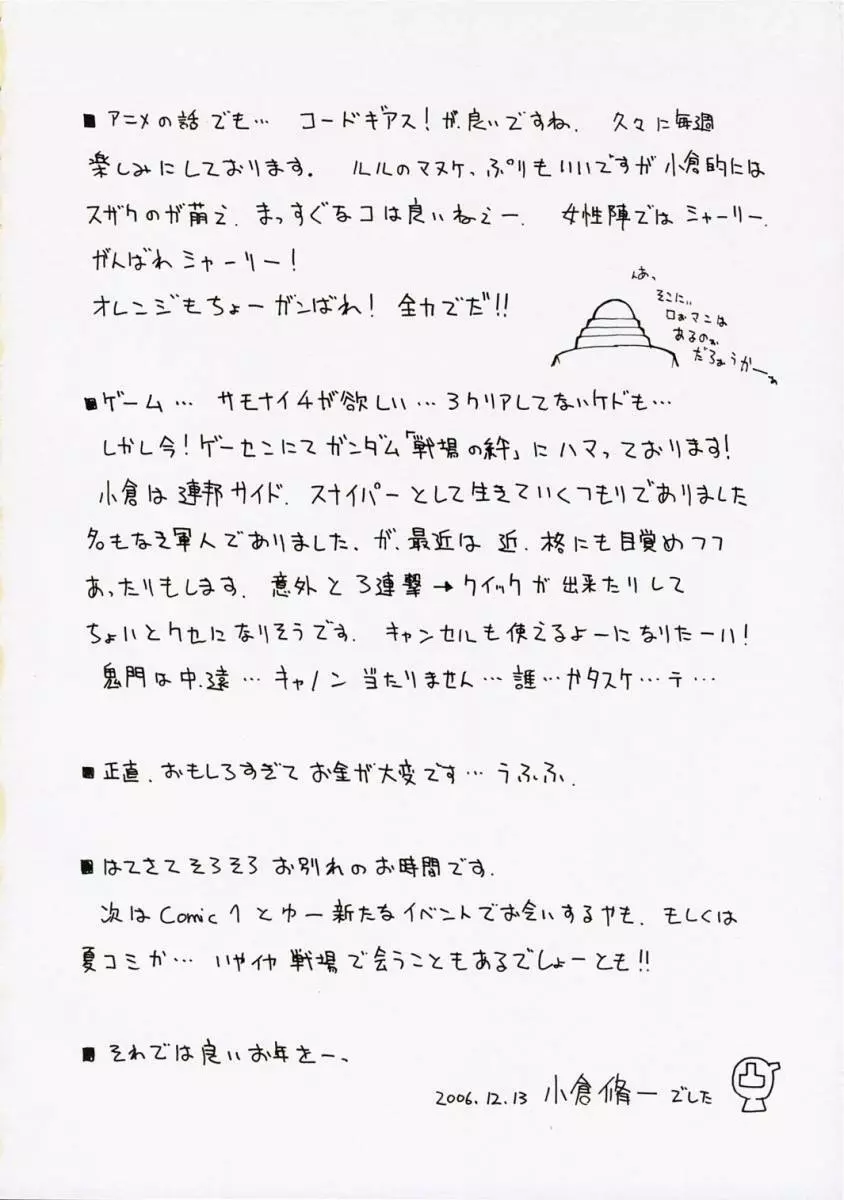 ■アニメの話でも… コードギアス!が良いですね、久々に毎週
楽しみにしております。ルルのマヌケ、ぷりもいいですが小倉的には
スザクのが萌え、まっすぐなコは良いねぇー、女性陣ではシャーリー、
がんばれシャーリー!
オレンジもちょーガンばれ! 全力でだ!!
んあ、
そこにぃ
ロぉマンは
あるのぉ
だろぉうかーぁ
■ゲーム… サモナイ4が欲しい…3クリアしてないケドも…
しかし今!ゲーセンにてガンダム「戦場の絆」にハマっております!
小倉は連邦サイド、スナイパーとして生きていくつもりでありました
名もなき軍人でありました、が、最近は近、格にも目覚めつつ
あったりもします、意外と3連撃→クイックが出来たりして
ちょいとクセになりそうです、キャンセルも使えるよーになりたーい!
鬼門は中、遠…キャノン当たりません…誰…かタスケ…テ…
■正直、おもしろすぎてお金が大変です…うふふ、
■はてさてそろそろお別れのお時間です、
次はComic1とゆー新たなイベントでお会いするやも、もしくは
夏コミか… いやイヤ戦場で会うこともあるでしょーとも!!
■それでは良いお年をー、
2006.12.13 小倉脩一でした
凸